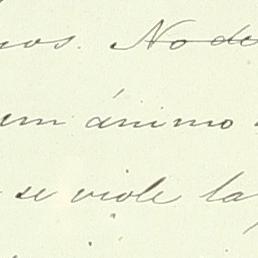 No de
ánimo
se viole la